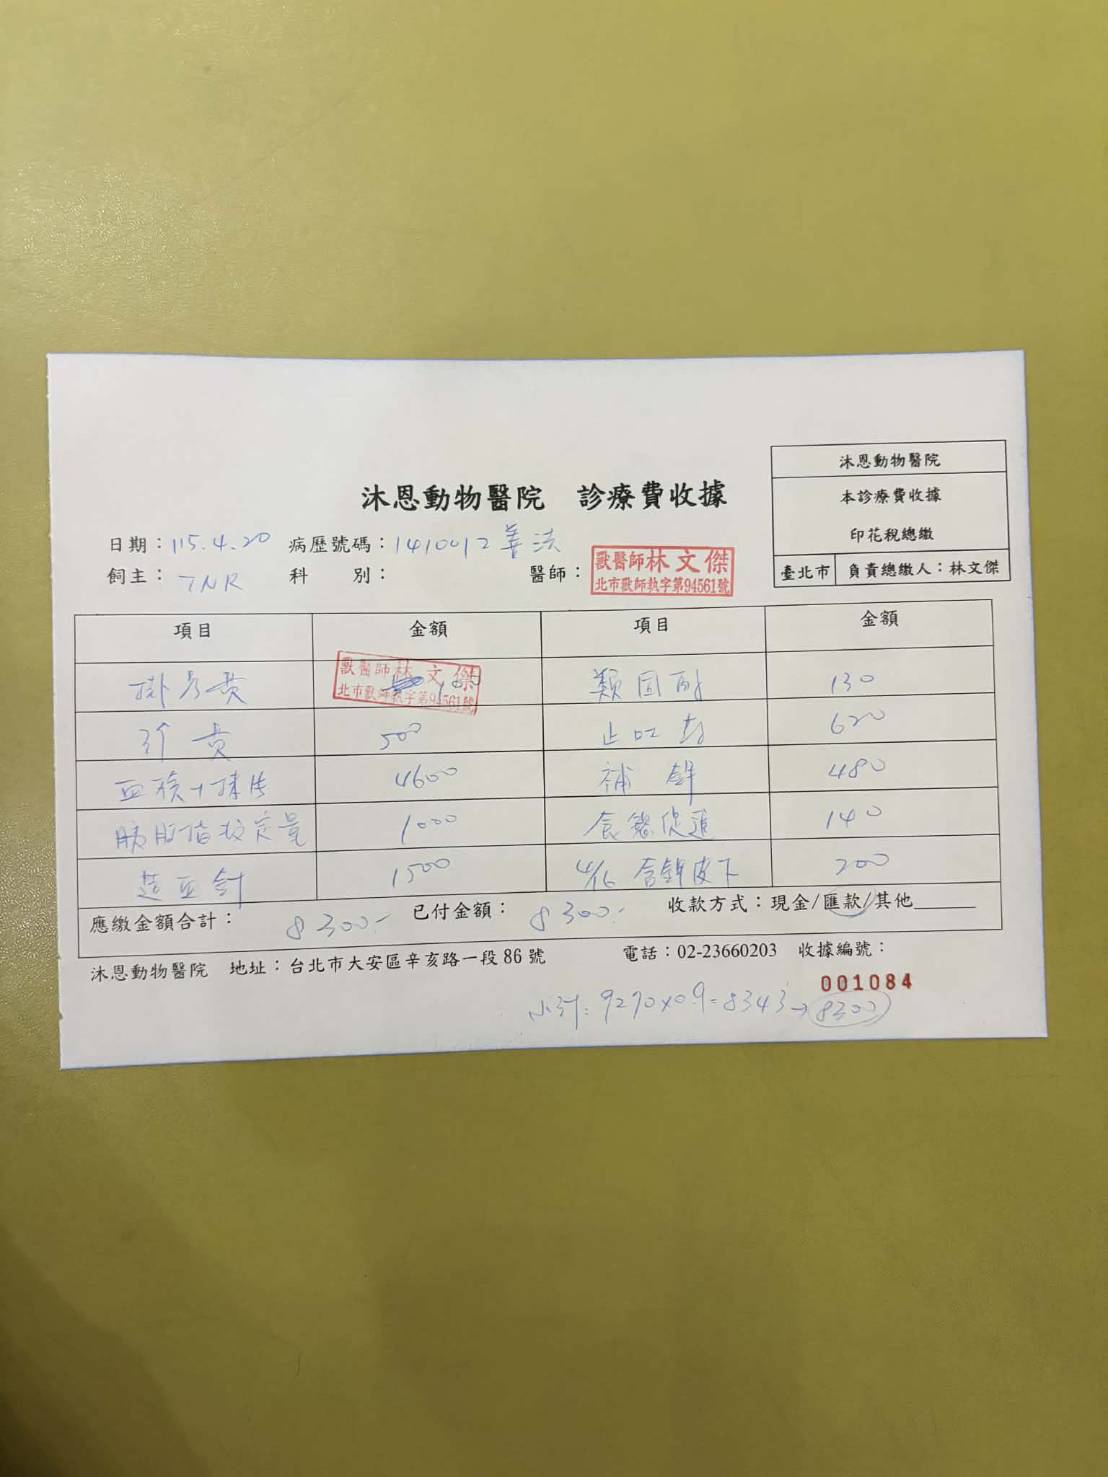 沐恩動物醫院
本診療費收據
印花稅總繳
臺北市 負責總繳人：林文傑
沐恩動物醫院 診療費收據
日期：115.4.20 病歷號碼：1410012
飼主：TNR 科 別： 醫師：
獸醫師林文傑
北市獸師執字第94561號
項目 金額 項目 金額
獸醫師林文傑
北市獸師執字第94561號
掛号費 100 類固醇 130
診費 500 止吐剤 620
血檢+抹片 4600 補鉀 480
胰脂酶定量 1000 食慾促進 140
造血針 1500 4/16 含鉀皮下 200
應繳金額合計：8300.- 已付金額：8300.- 收款方式：現金/匯款/其他
沐恩動物醫院 地址：台北市大安區辛亥路一段86號 電話：02-23660203 收據編號：
001084
小計：9270x0.9=8343→8300